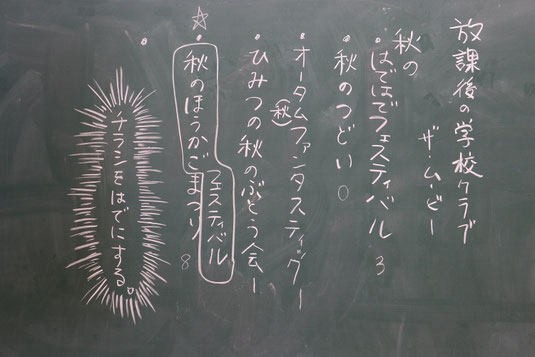 放課後の学校クラブ
ザ・ムービー
秋の
・はではでフェスティバル 3
・秋のつどい 0
・オータム(秋)ファンタスティック 1
・ひみつの秋のぶどう会 1
☆・秋のほうかごまつり 8
フェスティバル
・チラシをはでにする。